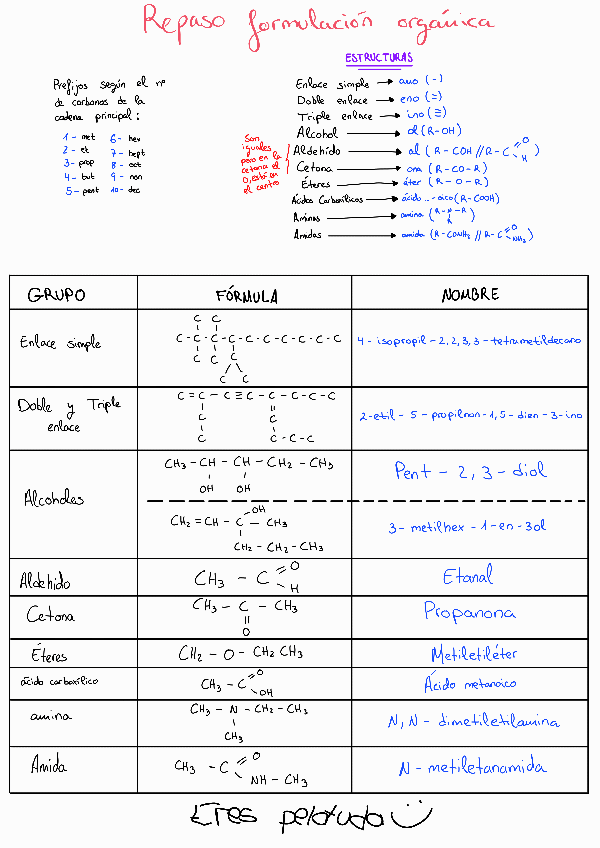 Repaso formulación orgánica
ESTRUCTURAS
Prefijos según el nº
de carbonos de la
cadena principal:
1- met 6- hex
2- et 7- hept
3- prop 8- oct
4- but 9- non
5- pent 10- dec
Enlace simple → ano (-)
Doble enlace → eno (=)
Triple enlace → ino (≡)
Alcohol → ol (R-OH)
Aldehído → al (R-COH // R-C=O H)
Cetona → ona (R-CO-R)
Éteres → éter (R-O-R)
Ácidos Carboxílicos → ácido ...-oico (R-COOH)
Aminas → amina (R-N-R
R)
Amidas → amida (R-CONH₂ // R-C=O NH₂)
Son
iguales
pero en la
cetona el
O está en
el centro
GRUPO FÓRMULA NOMBRE
Enlace simple
C C
C-C-C-C-C-C-C-C-C-C
C C C
C C
4-isopropil-2,2,3,3-tetrametildecano
Doble y Triple
enlace
C=C-C-C≡C-C-C-C-C
C C
C C-C-C
2-etil-5-propilnon-1,5-dien-3-ino
Alcoholes
CH₃-CH-CH-CH₂-CH₃
OH OH
Pent-2,3-diol
OH
CH₂=CH-C-CH₃
CH₂-CH₂-CH₃
3-metilhex-1-en-3ol
Aldehído
CH₃-C=O
H
Etanal
Cetona
CH₃-C-CH₃
O
Propanona
Éteres
CH₂-O-CH₂CH₃
Metiletiléter
ácido carboxílico
CH₃-C=O
OH
Ácido metanoico
amina
CH₃-N-CH₂-CH₃
CH₃
N,N-dimetiletilamina
Amida
CH₃-C=O
NH-CH₃
N-metiletanamida
Eres pelotuda